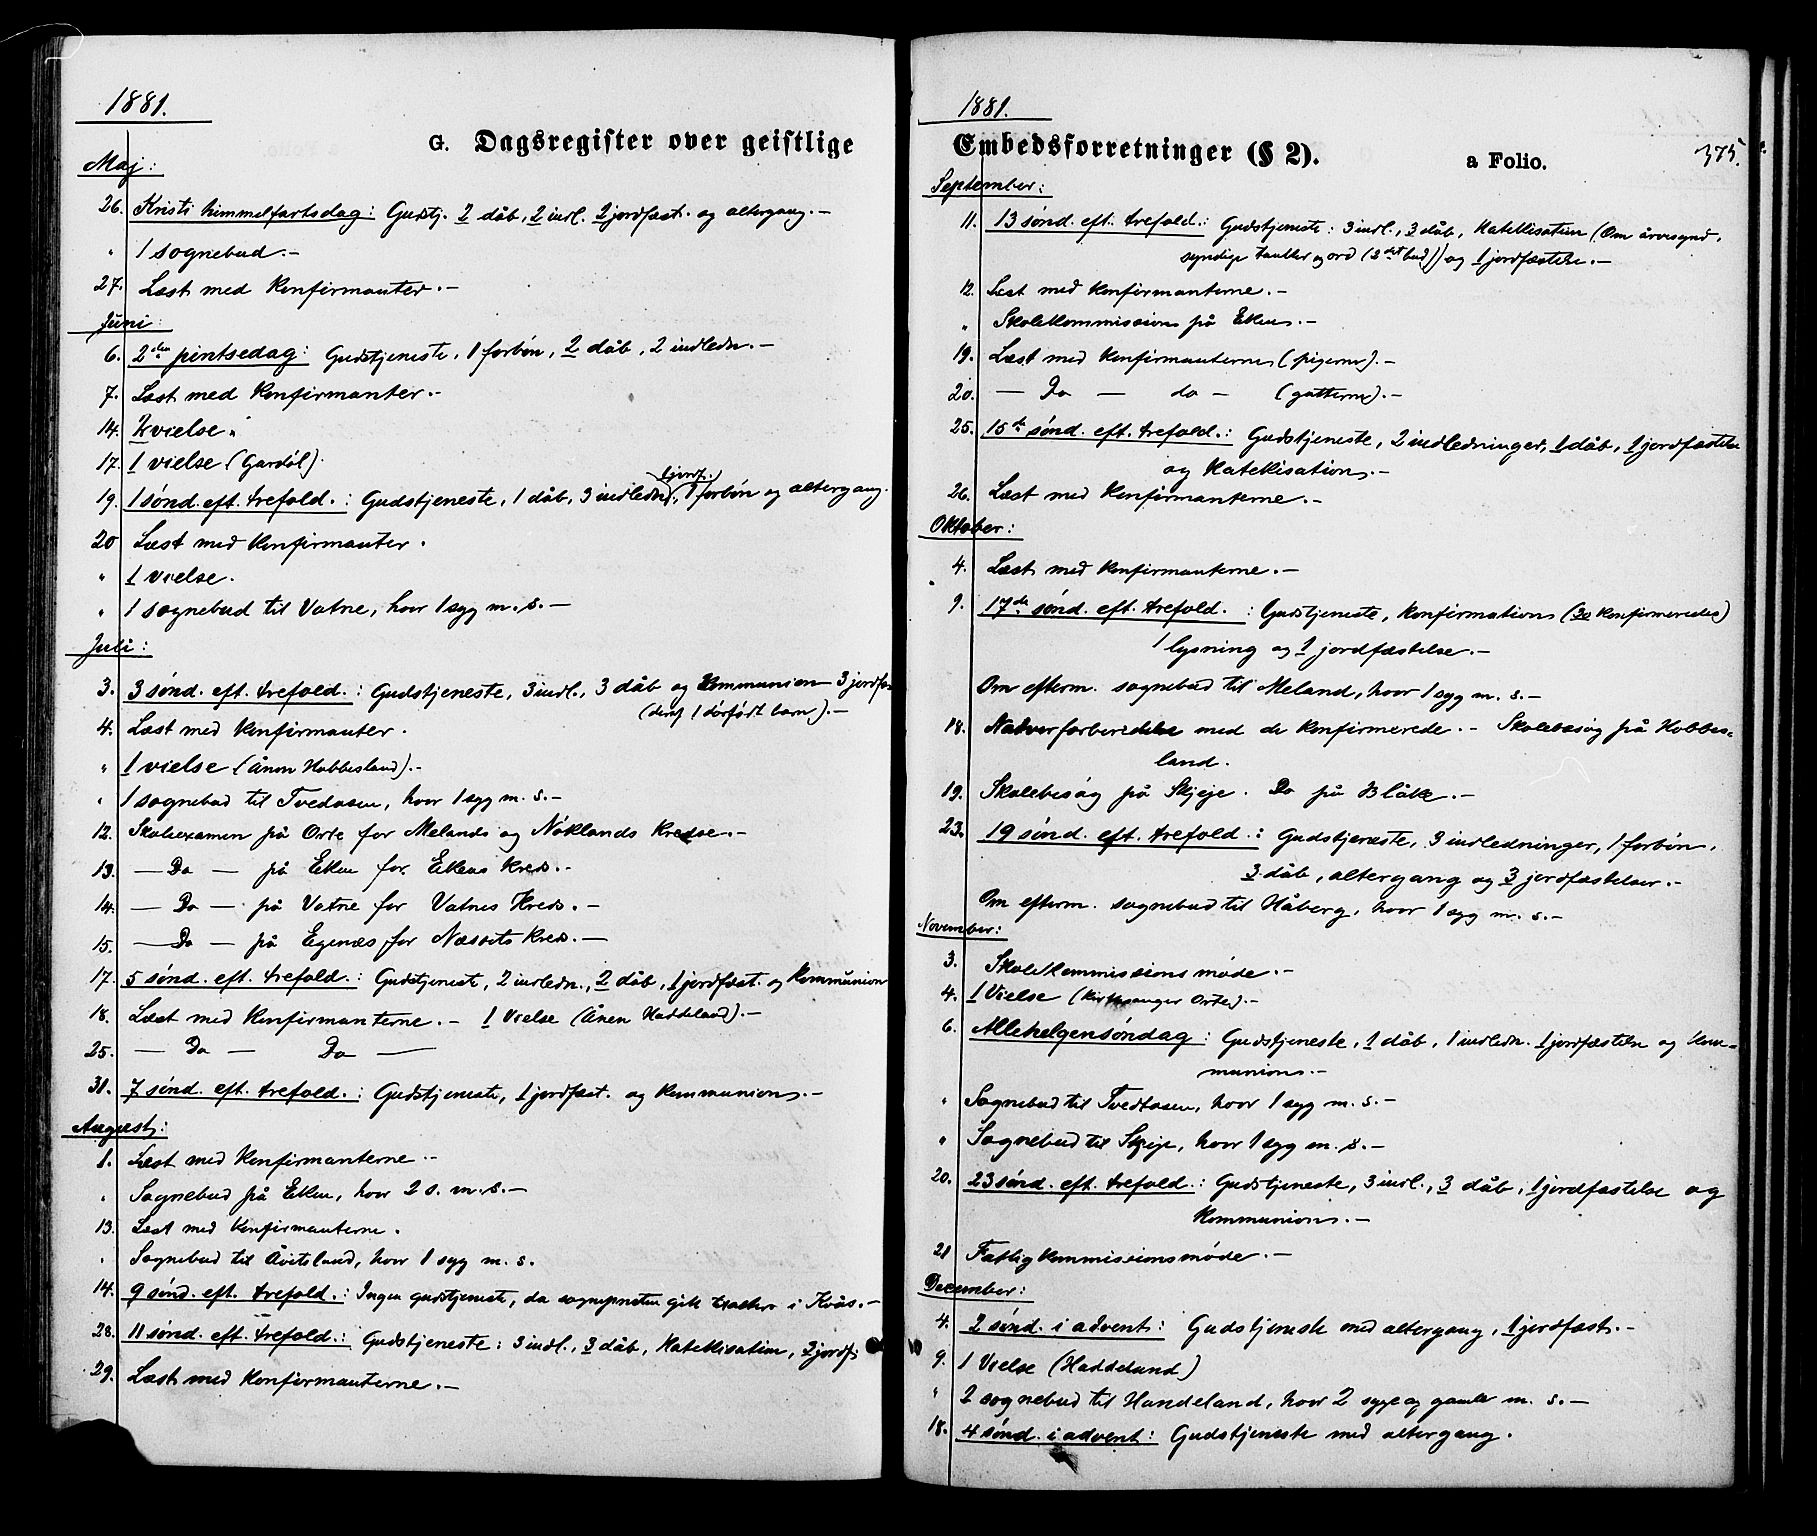 1881.
G. Dagsregister over geistlige
Maj:
26. Kristi himmelfartsdag: Gudstj. 2 dåb, 2 indl. 2 jordfæst. og altergang.—
" 1 sognebud.—
27. Læst med konfirmanter.—
Juni:
6. 2den pintsedag: Gudstjeneste, 1 forbön, 2 dåb, 2 indledn.—
7. Læst med konfirmanter.—
14. vielse.
17. 1 vielse (Gardöl).
1 jordf.
19. 1 sönd. eft. trefold.: Gudstjeneste, 1 dåb, 3 indledn., 1 forbön og altergang.
20 Læst med konfirmanter.
" 1 vielse.
" 1 sognebud til Vatne, hvor 1 syg m. s.—
Juli:
3. 3 sönd. eft. trefold.: Gudstjeneste, 3 indl., 3 dåb og kommunion 3 jordfæ
(deraf 1 dödfödt barn).—
4. Læst med konfirmanter.
" 1 vielse (Ånon Hobbesland).—
" 1 sognebud til Tvedosen, hvor 1 syg m. s.—
12. Skoleexamen på Orte for Melands og Nöklands kredse.—
13. — Do — på Eken for Ekens kreds.—
14. — Do — på Vatne for Vatnes kreds.—
15. — Do — på Egenæs for Næssets kreds.—
17. 5 sönd. eft. trefold.: Gudstjeneste, 2 indledn., 2 dåb, 1 jordfæst. og kommunion
18. Læst med konfirmanterne.— 1 Vielse (Ånen Haddeland).—
25. — Do — Do —
31. 7 sönd. eft. trefold.: Gudstjeneste, 1 jordfæst. og kommunion.—
August:
1. Læst med konfirmanterne.—
" Sognebud på Eken, hvor 2 s. m. s.—
13. Læst med konfirmanterne.
" Sognebud til Åvitsland, hvor 1 syg m. s.
14. 9 sönd. eft. trefold.: Ingen gudstjeneste, da sognepresten gik i Kvås.—
28. 11 sönd. eft. trefold.: Gudstjeneste: 3 indl., 3 dåb, katekisation, 2 jordf.
29. Læst med konfirmanterne.—
1881.
Embedsforretninger (§ 2). a Folio. 375.
September:
11. 13 sönd. eft. trefold.: Gudstjeneste: 3 indl., 3 dåb, katekisation (Om arvesynd,
syndige tanker og ord (2det bud)) og 1 jordfæstelse.—
12. Læst med konfirmanterne.—
" Skolekommission på Eken.—
19. Læst med konfirmanterne (pigerne).—
20. — Do — do — (gutterne).—
25. 15de sönd. eft. trefold.: Gudstjeneste, 2 indledninger, 1 dåb, 1 jordfæstelse
og katekisation.—
26. Læst med konfirmanterne.—
Oktober:
4. Læst med konfirmanterne.—
9. 17de sönd. eft. trefold.: Gudstjeneste, konfirmation (30 konfirmeredes)
1 lysning og 1 jordfæstelse.—
Om efterm. sognebud til Meland, hvor 1 syg m. s.—
18. Nadverforberedelse med de konfirmerede.— Skolebesög på Hobbes=
land.
19. Skolebesög på Skjeje. Do på Blåk.—
23. 19 sönd. eft. trefold.: Gudstjeneste, 3 indledninger, 1 forbön,
3 dåb, altergang og 3 jordfæstelser.—
Om efterm. sognebud til Håberg, hvor 1 syg m. s.—
November:
3. Skolekommissionsmöde.—
4. 1 Vielse (Kirkesanger Orte).—
6. Allehelgensöndag: Gudstjeneste, 1 dåb, 1 indledn. 1 jordfæstelse og kom=
munion.—
" Sognebud til Tvedtosen, hvor 1 syg m. s.—
" Sognebud til Skeje, hvor 1 syg m. s.—
20. 23 sönd. eft. trefold.: Gudstjeneste, 3 indl., 3 dåb, 1 jordfæstelse og
kommunion.—
21 Fattigkommissionsmöde.—
December:
4. 2 sönd. i advent: Gudstjeneste med altergang, 1 jordfæst.—
9. 1 Vielse (Haddeland)
" 2 sognebud til Handeland, hvor 2 syge og gamle m. s.—
18. 4 sönd. i advent: Gudstjeneste med altergang.